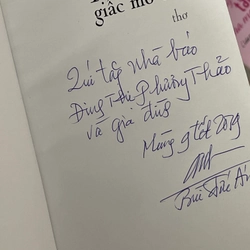 giấc mơ
thơ
Quí tặng nhà báo
Đinh Thu Phương Thảo
và gia đình
Mùng 9 tết 2019
Bùi Đức Án